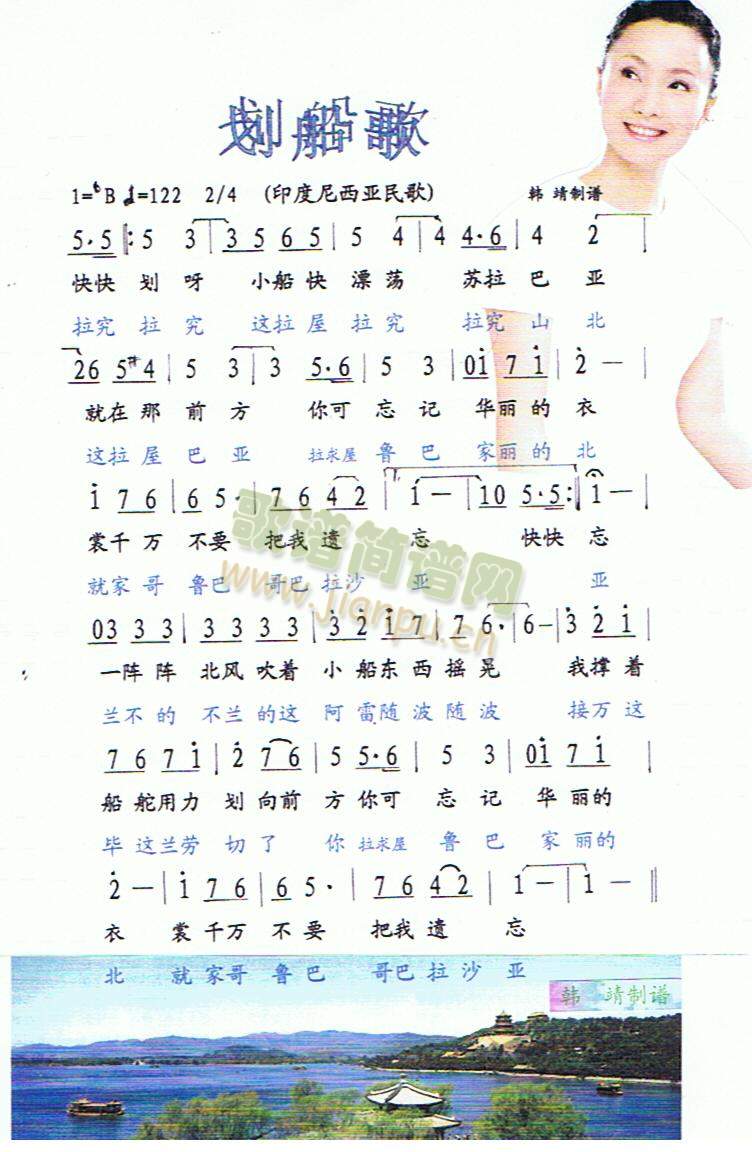 划船歌
1=♭B ♩=122 2/4 (印度尼西亚民歌) 韩 靖制谱
5·5 |: 5 3 | 3 5 6 5 | 5 4 | 4 4·6 | 4 2 |
快快 划 呀 小船 快 漂 荡 苏拉 巴 亚
拉究 拉 究 这拉 屋 拉 究 拉究 山 北
26 5 #4 | 5 3 | 3 5·6 | 5 3 | 0i 7 i | 2 — |
就在 那 前 方 你可 忘 记 华丽 的 衣
这拉 屋 巴 亚 拉求屋 鲁 巴 家丽 的 北
i 7 6 | 6 5· | 7 6 4 2 | i — | 10 5·5 :| i — |
裳千 万 不要 把我 遗 忘 快快 忘
就家 哥 鲁巴 哥巴 拉沙 亚 亚
歌谱简谱网
www.jianpu.cn
03 3 3 | 3 3 3 3 | 3 2 i 7 | 7 6· | 6 — | 3 2 i |
一阵 阵 北风 吹着 小 船东 西 摇 晃 我 撑 着
兰不 的 不兰 的这 阿 雷随 波 随 波 接万 这
7 6 7 i | 2 7 6 | 5 5·6 | 5 3 | 0i 7 i |
船 舵用 力 划 向前 方 你可 忘 记 华 丽的
毕 这兰劳 切 了 你 拉求屋 鲁 巴 家 丽的
2 — | i 7 6 | 6 5· | 7 6 4 2 | 1 — | 1 — ‖
衣 裳 千万 不 要 把我 遗 忘
北 就 家哥 鲁 巴 哥巴 拉 沙 亚
韩 靖制谱